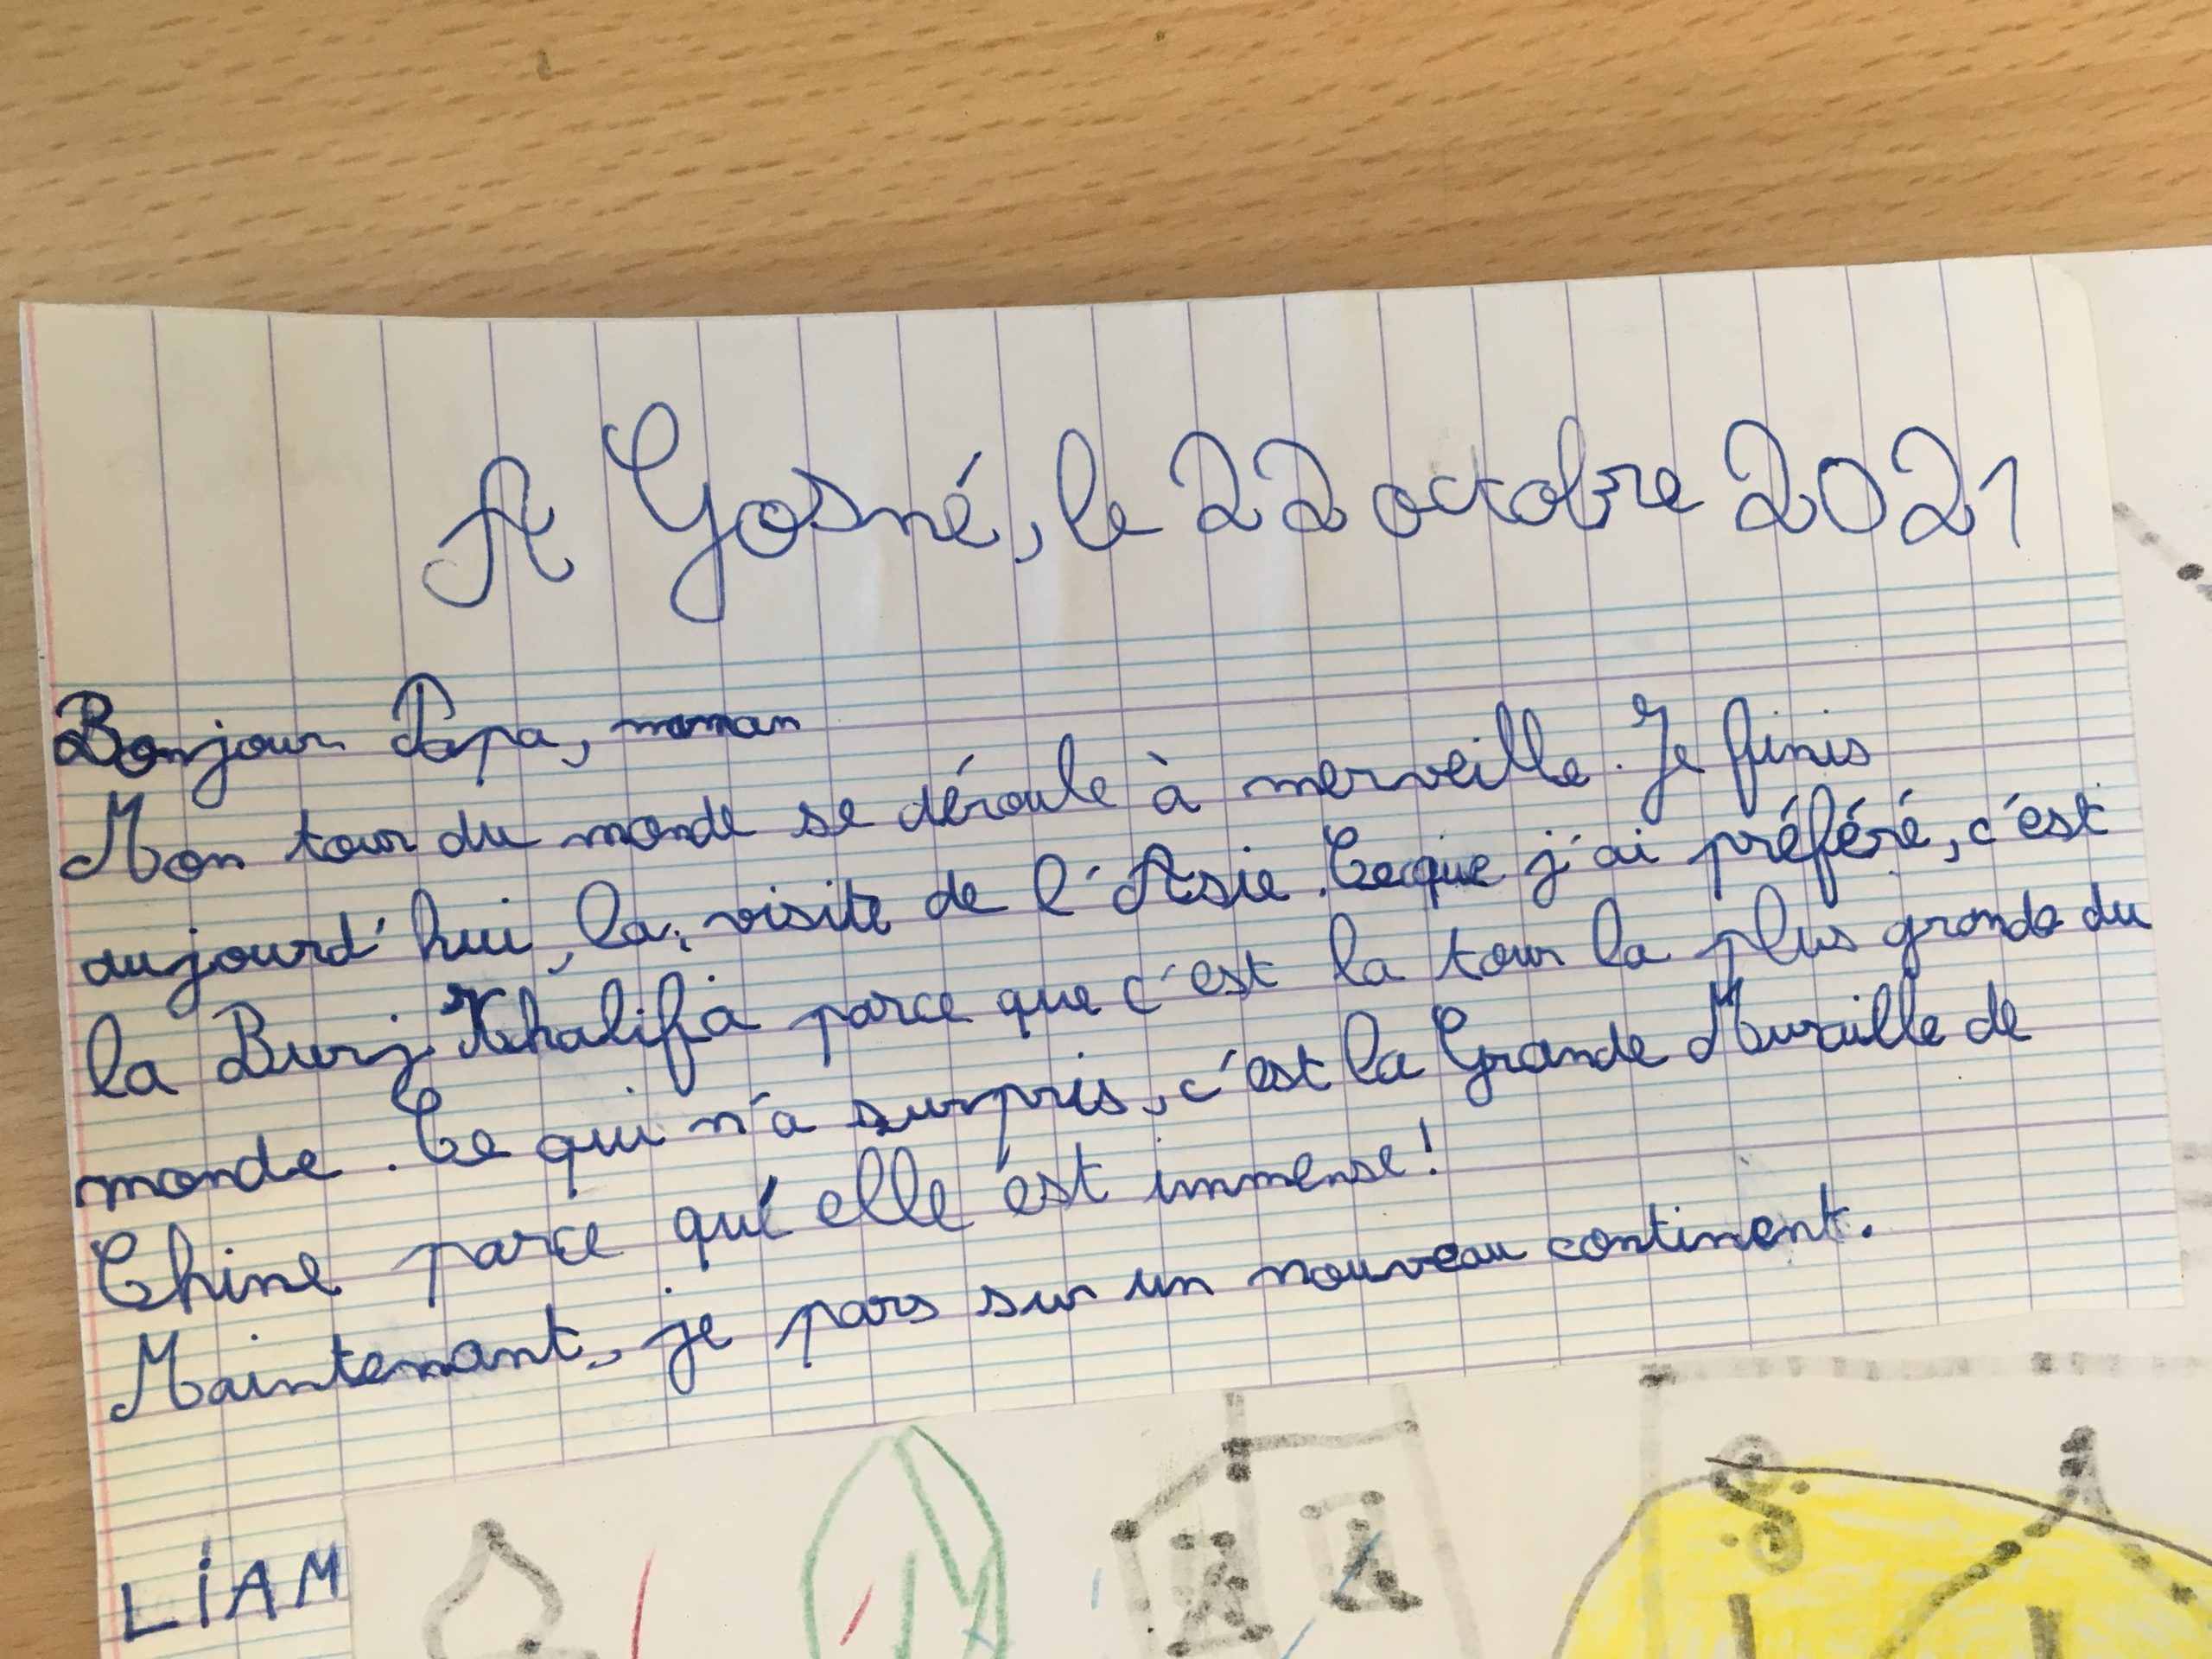 A Gosné, le 22 octobre 2021
Bonjour Papa, maman
Mon tour du monde se déroule à merveille. Je finis
aujourd'hui, la visite de l'Asie. Ce que j'ai préféré, c'est
la Burj Khalifa parce que c'est la tour la plus grande du
monde. Ce qui n'a surpris, c'est la Grande Muraille de
Chine parce qu'elle est immense!
Maintenant, je pars sur un nouveau continent.
LIAM